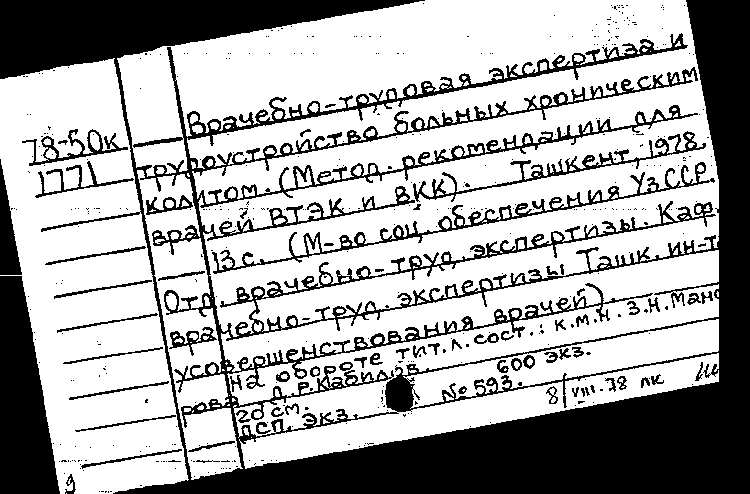 Врачебно-трудовая экспертиза и
78-50к
трудоустройство больных хроническим
1771
колитом. (Метод. рекомендации для
врачей ВТЭК и ВКК). Ташкент, 1978.
13 с. (М-во соц. обеспечения УзССР.
Отд. врачебно-труд. экспертизы. Каф.
врачебно-труд. экспертизы Ташк. ин-т
усовершенствования врачей).
На обороте тит. л. сост.: к.м.н. З.Н.Мано
рова, Д.Р.Кабилов.
20 см. №593. 600 экз.
ДСП. Экз.
8/VIII.78 лк
9